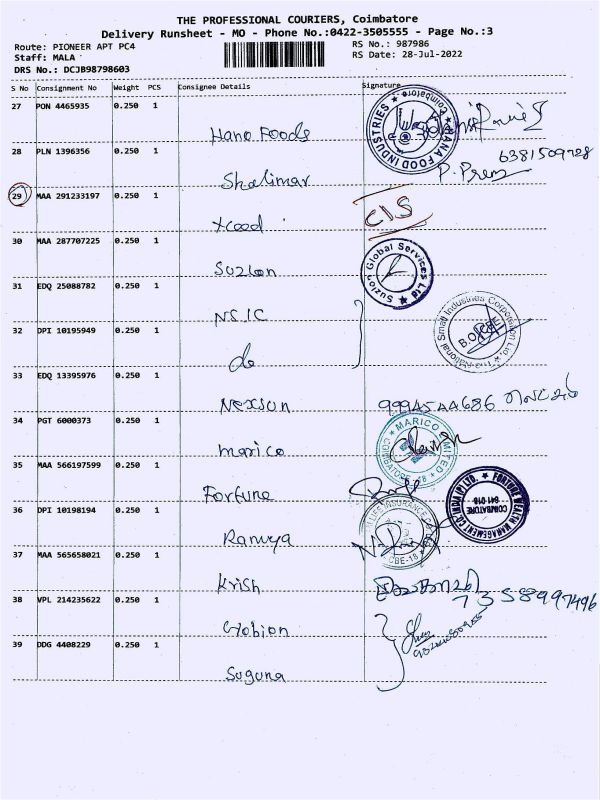 THE PROFESSIONAL COURIERS, Coimbatore
Delivery Runsheet - MO - Phone No.:0422-3505555 - Page No.:3
Route: PIONEER APT PC4 RS No.: 987986
Staff: MALA RS Date: 28-Jul-2022
DRS No.: DCJB98798603
S No Consignment No Weight PCS Consignee Details Signature
27 PON 4465935 0.250 1 Hano Foods
HANA FOOD INDUSTRIES Coimbatore
28 PLN 1396356 0.250 1 Shalimar P. Prem 6381509728
29 MAA 291233197 0.250 1 Xcood CIS
30 MAA 287707225 0.250 1 Suzlon
Suzlon Global Services Ltd
31 EDQ 25088782 0.250 1 NSIC
32 DPI 10195949 0.250 1 do
National Small Industries Corporation Ltd.
33 EDQ 13395976 0.250 1 Nexsun 9994544686
34 PGT 6000373 0.250 1 marico
MARICO LIMITED COIMBATORE-18
35 MAA 566197599 0.250 1 Fortune
FORTUNE WEALTH MANAGEMENT CO. INDIA (P) LTD. COIMBATORE 641 018
36 DPI 10198194 0.250 1 Ramya
INSURANCE CBE-18
37 MAA 565658021 0.250 1 Krish
7358997496
38 VPL 214235622 0.250 1 Gobion
39 DDG 4408229 0.250 1 Suguna